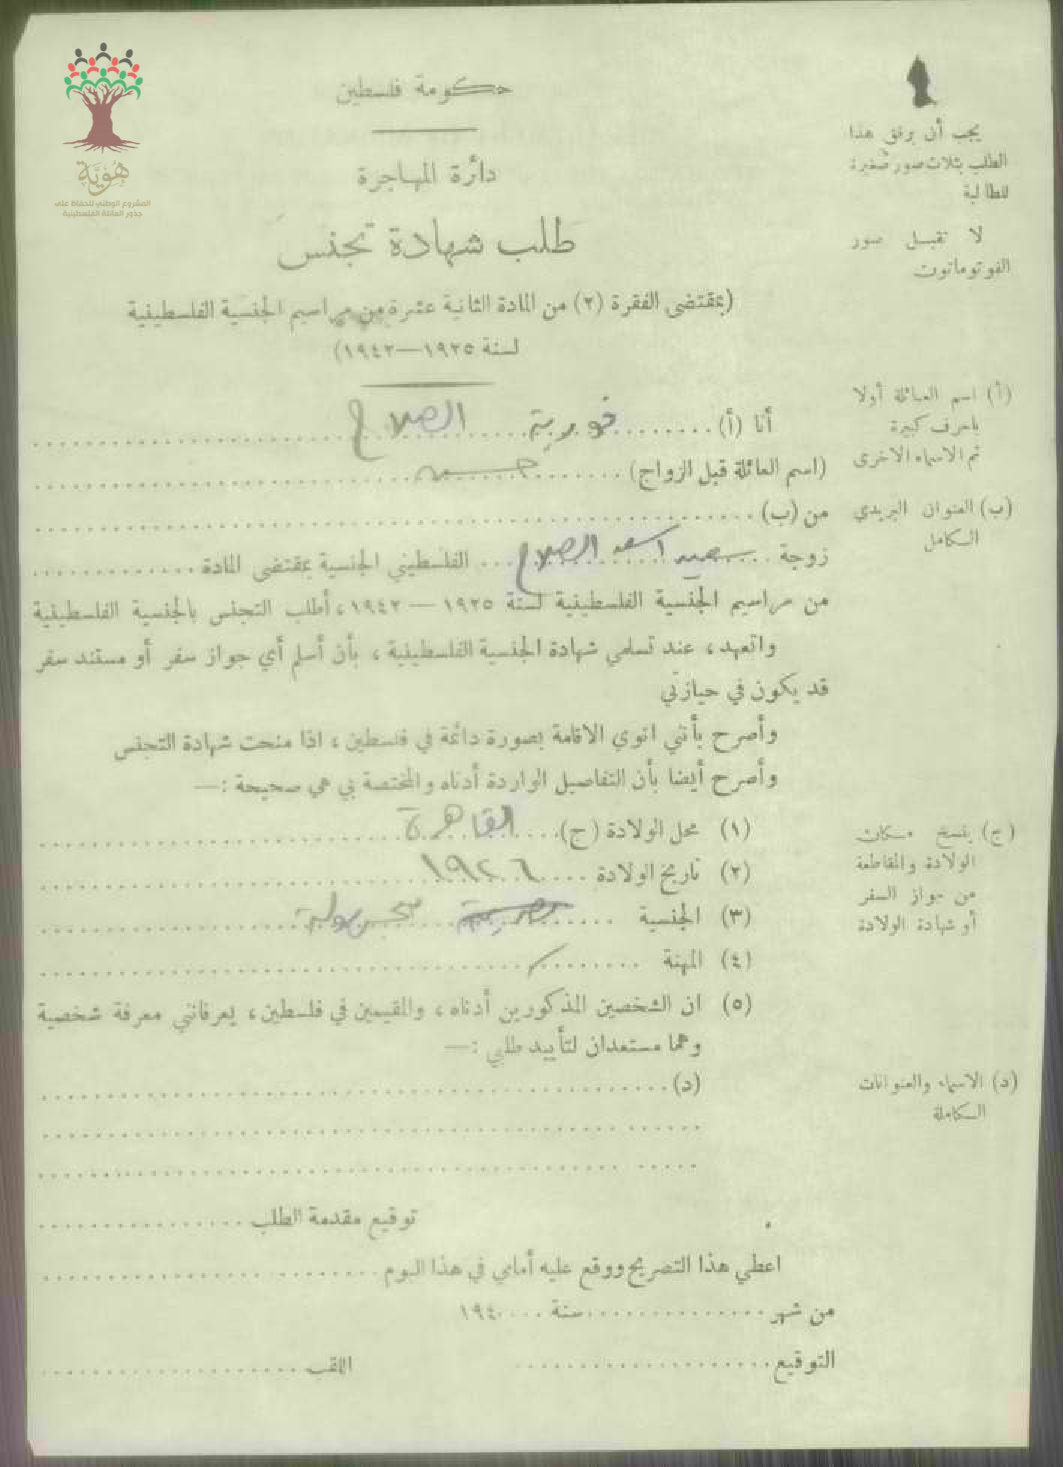 هُوَيَّة
المشروع الوطني للحفاظ على
جذور العائلة الفلسطينية
حكومة فلسطين
دائرة المهاجرة
طلب شهادة تجنس
(بمقتضى الفقرة (٢) من المادة الثانية عشرة من مراسيم الجنسية الفلسطينية
لسنة ١٩٢٥—١٩٤٢)
يجب أن يرفق هذا
الطلب بثلاث صور صغيرة
للطالبة
لا تقبل صور
الفوتوماتون
أنا (أ) ........ الصلاح
(اسم العائلة قبل الزواج) ........
من (ب) ........
زوجة ... سعيد اسعد الصلاح ... الفلسطيني الجنسية بمقتضى المادة ........
من مراسيم الجنسية الفلسطينية لسنة ١٩٢٥ — ١٩٤٢، أطلب التجنس بالجنسية الفلسطينية
واتعهد، عند تسلمي شهادة الجنسية الفلسطينية، بأن أسلم أي جواز سفر أو مستند سفر
قد يكون في حيازتي
وأصرح بأنني انوي الاقامة بصورة دائمة في فلسطين، اذا منحت شهادة التجنس
وأصرح أيضا بأن التفاصيل الواردة أدناه والمختصة بي هي صحيحة :—
(١) محل الولادة (ج) .... القاهرة ........
(٢) تاريخ الولادة .... ١٩٢٦ ........
(٣) الجنسية ........
(٤) المهنة ........
(٥) ان الشخصين المذكورين أدناه، والمقيمين في فلسطين، يعرفانني معرفة شخصية
وهما مستعدان لتأييد طلبي :—
(د) ........
توقيع مقدمة الطلب ........
اعطي هذا التصريح ووقع عليه أمامي في هذا اليوم ........
من شهر ........ سنة .... ١٩٤٠
التوقيع ........ اللقب ........
(أ) اسم العائلة أولا
باحرف كبيرة
ثم الاسماء الاخرى
(ب) العنوان البريدي
الكامل
(ج) ينسخ مكان
الولادة والمقاطعة
من جواز السفر
أو شهادة الولادة
(د) الاسماء والعنوانات
الكاملة